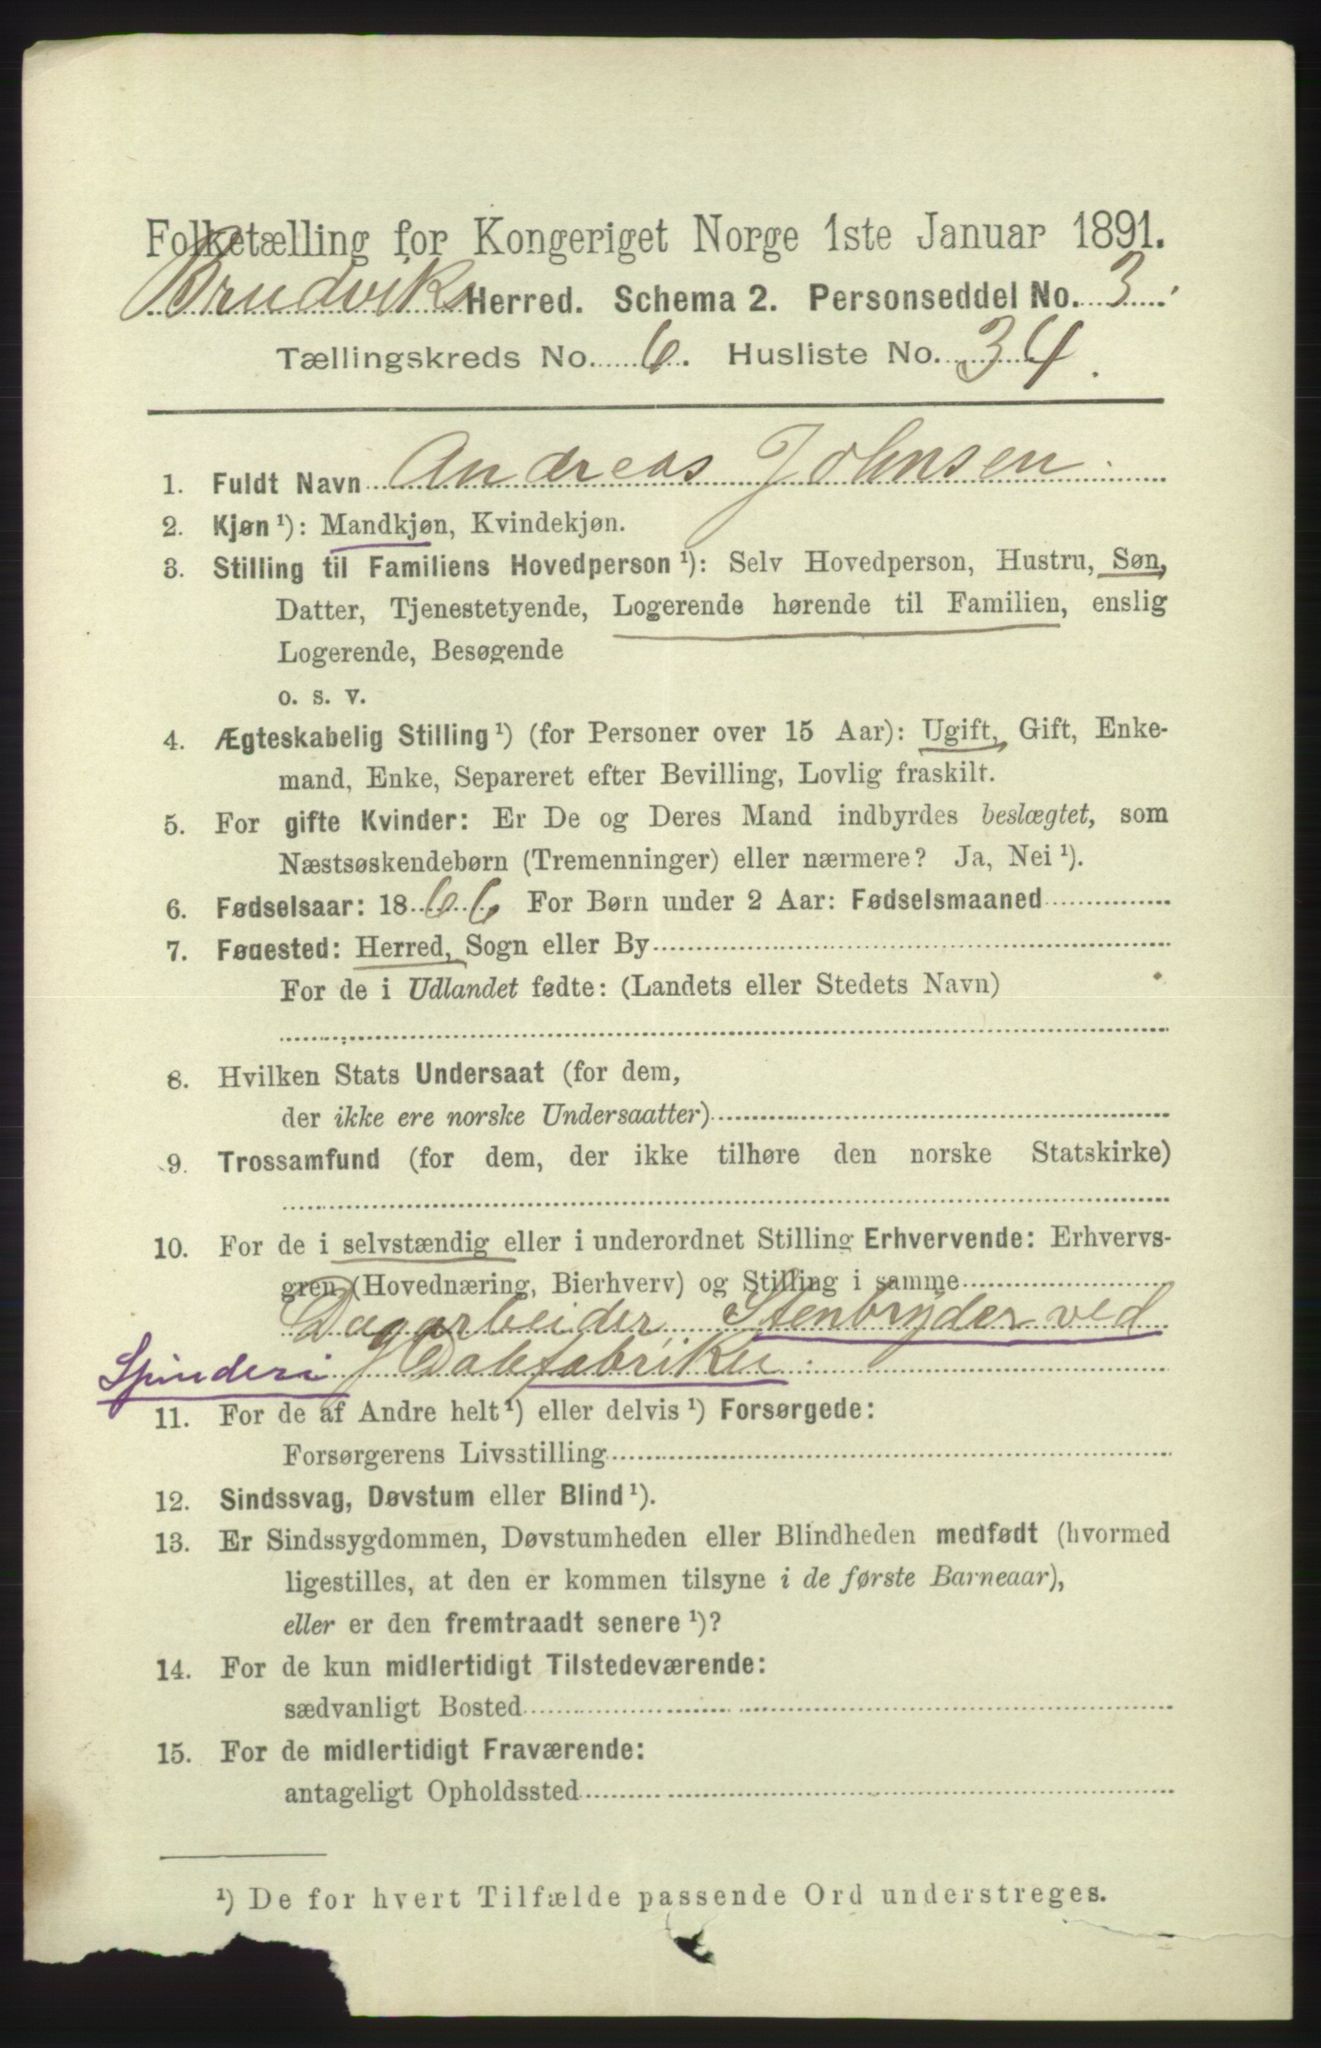 Folketælling for Kongeriget Norge 1ste Januar 1891.
Brudviks Herred. Schema 2. Personseddel No. 3.
Tællingskreds No. 6. Husliste No. 34.
1. Fuldt Navn Andreas Johnsen.
2. Kjøn ¹): Mandkjøn, Kvindekjøn.
3. Stilling til Familiens Hovedperson ¹): Selv Hovedperson, Hustru, Søn,
Datter, Tjenestetyende, Logerende hørende til Familien, enslig
Logerende, Besøgende
o. s. v.
4. Ægteskabelig Stilling ¹) (for Personer over 15 Aar): Ugift, Gift, Enke-
mand, Enke, Separeret efter Bevilling, Lovlig fraskilt.
5. For gifte Kvinder: Er De og Deres Mand indbyrdes beslægtet, som
Næstsøskendebørn (Tremenninger) eller nærmere? Ja, Nei ¹).
6. Fødselsaar: 1866 For Børn under 2 Aar: Fødselsmaaned
7. Fødested: Herred, Sogn eller By
For de i Udlandet fødte: (Landets eller Stedets Navn)
8. Hvilken Stats Undersaat (for dem,
der ikke ere norske Undersaatter)
9. Trossamfund (for dem, der ikke tilhøre den norske Statskirke)
10. For de i selvstændig eller i underordnet Stilling Erhvervende: Erhvervs-
gren (Hovednæring, Bierhverv) og Stilling i samme
Dagarbeider Stenbryder ved
Spinderi fabriken.
11. For de af Andre helt ¹) eller delvis ¹) Forsørgede:
Forsørgerens Livsstilling
12. Sindssvag, Døvstum eller Blind ¹).
13. Er Sindssygdommen, Døvstumheden eller Blindheden medfødt (hvormed
ligestilles, at den er kommen tilsyne i de første Barneaar),
eller er den fremtraadt senere ¹)?
14. For de kun midlertidigt Tilstedeværende:
sædvanligt Bosted
15. For de midlertidigt Fraværende:
antageligt Opholdssted
¹) De for hvert Tilfælde passende Ord understreges.